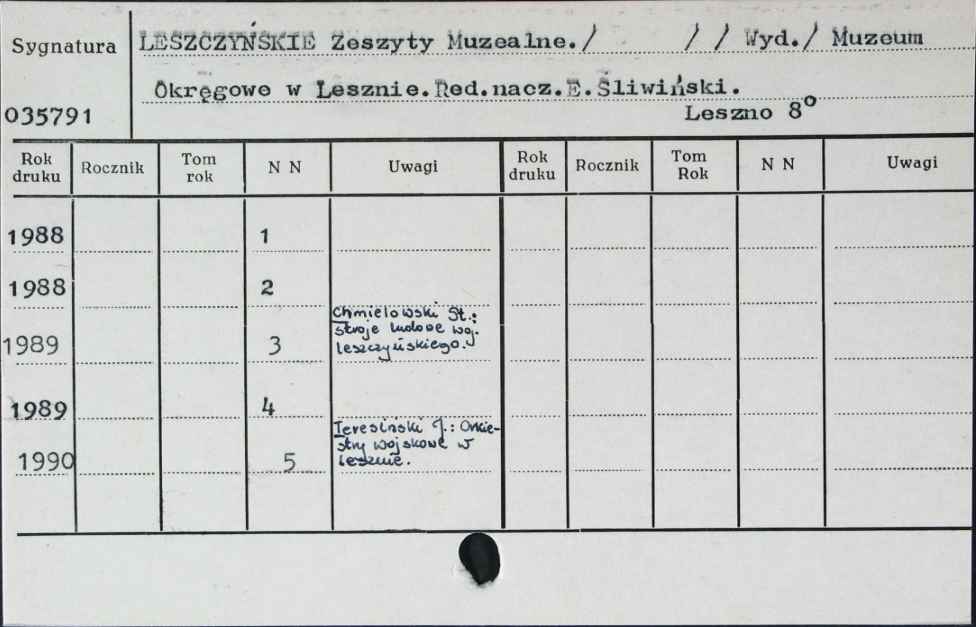 Sygnatura
LESZCZYŃSKIE Zeszyty Muzealne./ / / Wyd./ Muzeum
Okręgowe w Lesznie.Red.nacz.E.Śliwiński.
035791
Leszno 8o
Rok druku Rocznik Tom rok N N Uwagi Rok druku Rocznik Tom Rok N N Uwagi
1988 1
1988 2
Chmielowski St.:
stroje ludowe woj.
1989 3 leszczyńskiego.
1989 4
Teresiński J.: Orkie-
stry wojskowe w
1990 5 Lesznie.